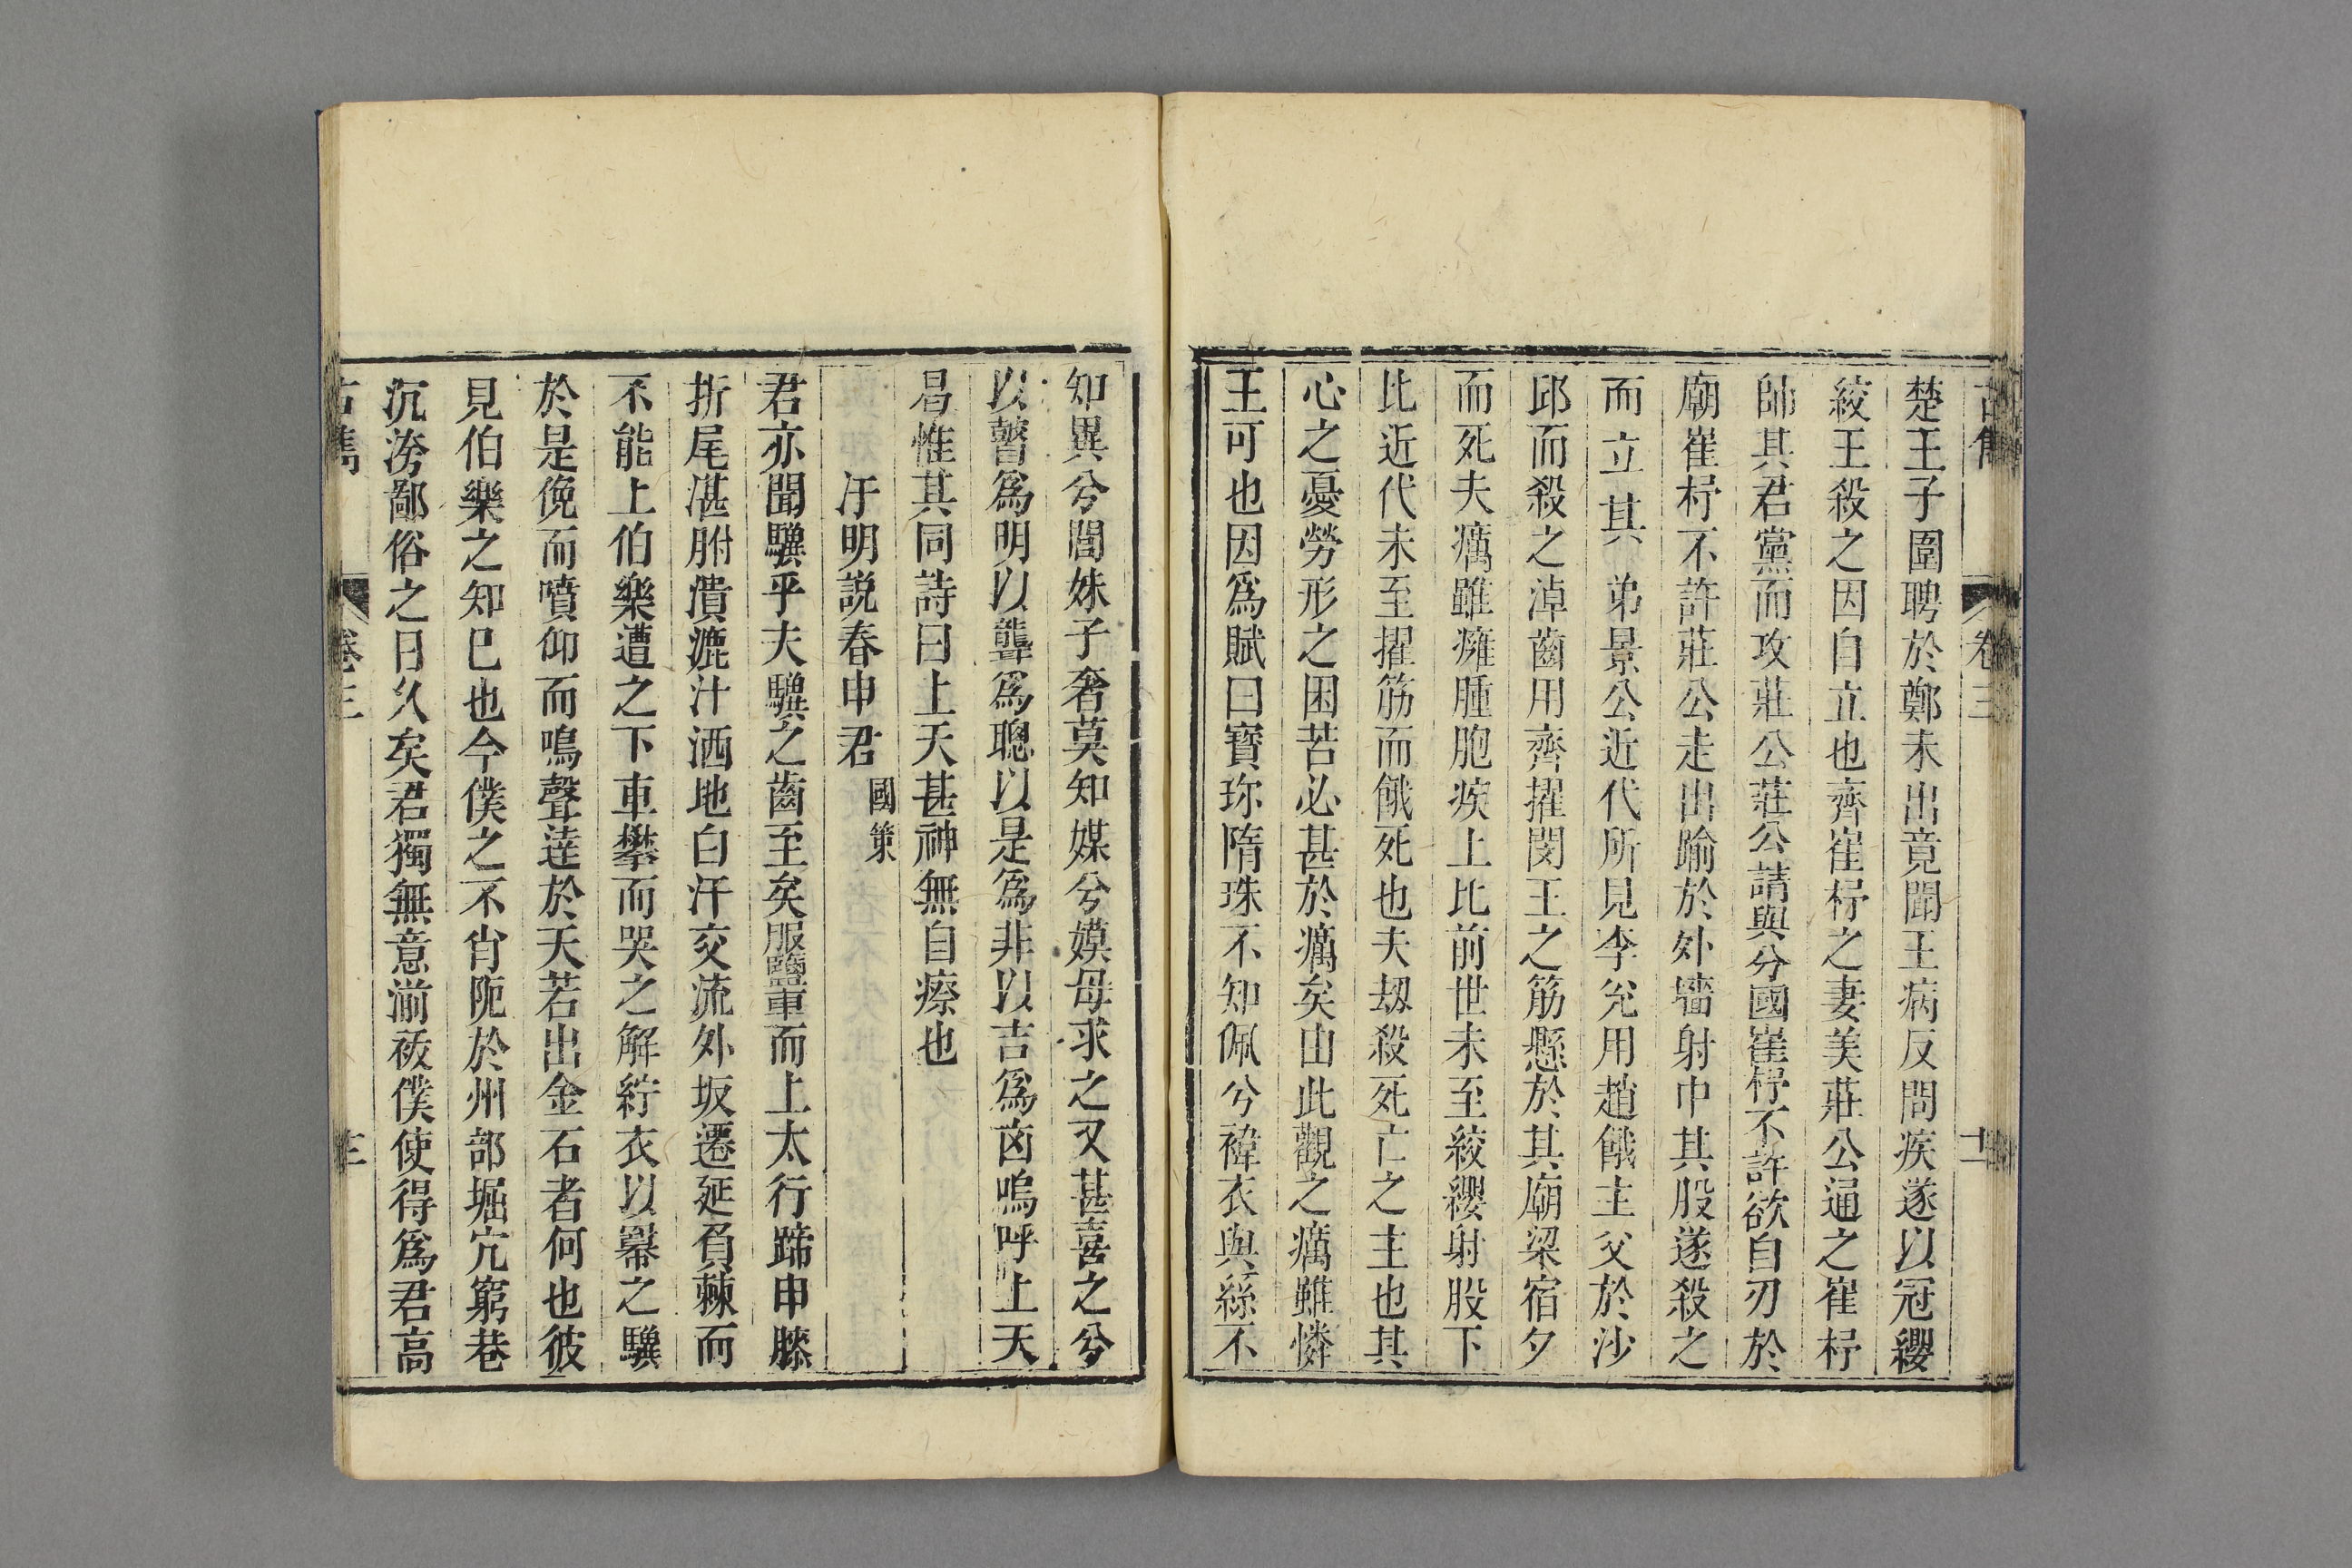 古雋 卷三 十二
楚王子圍聘於鄭未出竟聞王病反問疾遂以冠纓
絞王殺之因自立也齊崔杼之妻美莊公通之崔杼
帥其君黨而攻莊公莊公請與分國崔杼不許欲自刃於
廟崔杼不許莊公走出踰於外墻射中其股遂殺之
而立其弟景公近代所見李兊用趙餓主父於沙
邱而殺之淖齒用齊擢閔王之筋懸於其廟梁宿夕
而死夫癘雖癰腫胞疾上比前世未至絞纓射股下
比近代未至擢筋而餓死也夫刼殺死亡之主也其
心之憂勞形之困苦必甚於癘矣由此觀之癘雖憐
王可也因爲賦曰寶珎隋珠不知佩兮褘衣與絲不
知異兮閭姝子奢莫知媒兮嫫母求之又甚喜之兮
以瞽爲明以聾爲聰以是爲非以吉爲㐫嗚呼上天
曷惟其同詩曰上天甚神無自瘵也
汙明説春申君 國策
君亦聞驥乎夫驥之齒至矣服鹽車而上太行蹄申膝
折尾湛胕潰漉汁洒地白汗交流外坂遷延負棘而
不能上伯樂遭之下車攀而哭之解紵衣以羃之驥
於是俛而噴仰而鳴聲逹於天若出金石者何也彼
見伯樂之知已也今僕之不肖阨於州部堀穴窮巷
沉洿鄙俗之日久矣君獨無意湔祓僕使得爲君高
古雋 卷三